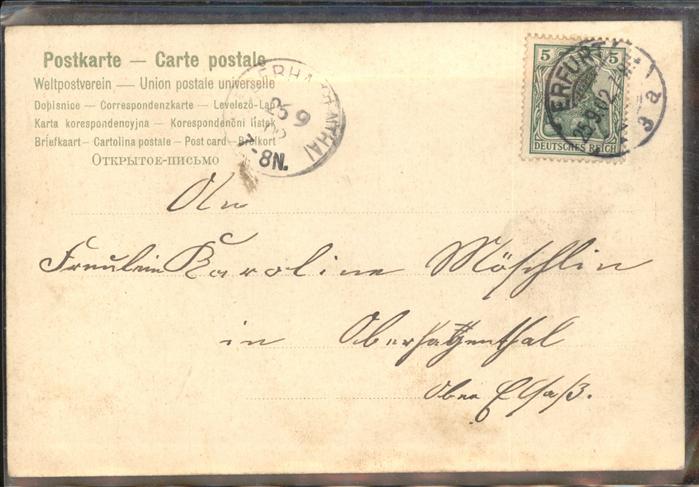 Postkarte — Carte postale
Weltpostverein — Union postale universelle
Dopisnice — Correspondenzkarte — Levelező-Lap
Karta korespondencyjna — Korespondenční lístek
Briefkaart — Cartolina postale — Post card — Brefkort
Открытое-письмо
25 9
-8N.
5 5
DEUTSCHES REICH
ERFURT
25.9.02.
3a
An
Fräulein Karoline Möschlin
in Oberhagenthal
Ober Elsaß.